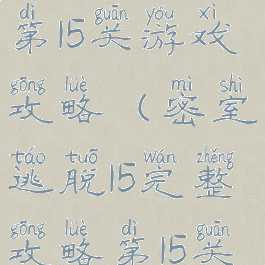 dì guān yóu xì
第15关游戏
gōng lüè mì shì
攻略(密室
táo tuō wán zhěng
逃脱15完整
gōng lüè dì guān
攻略第15关